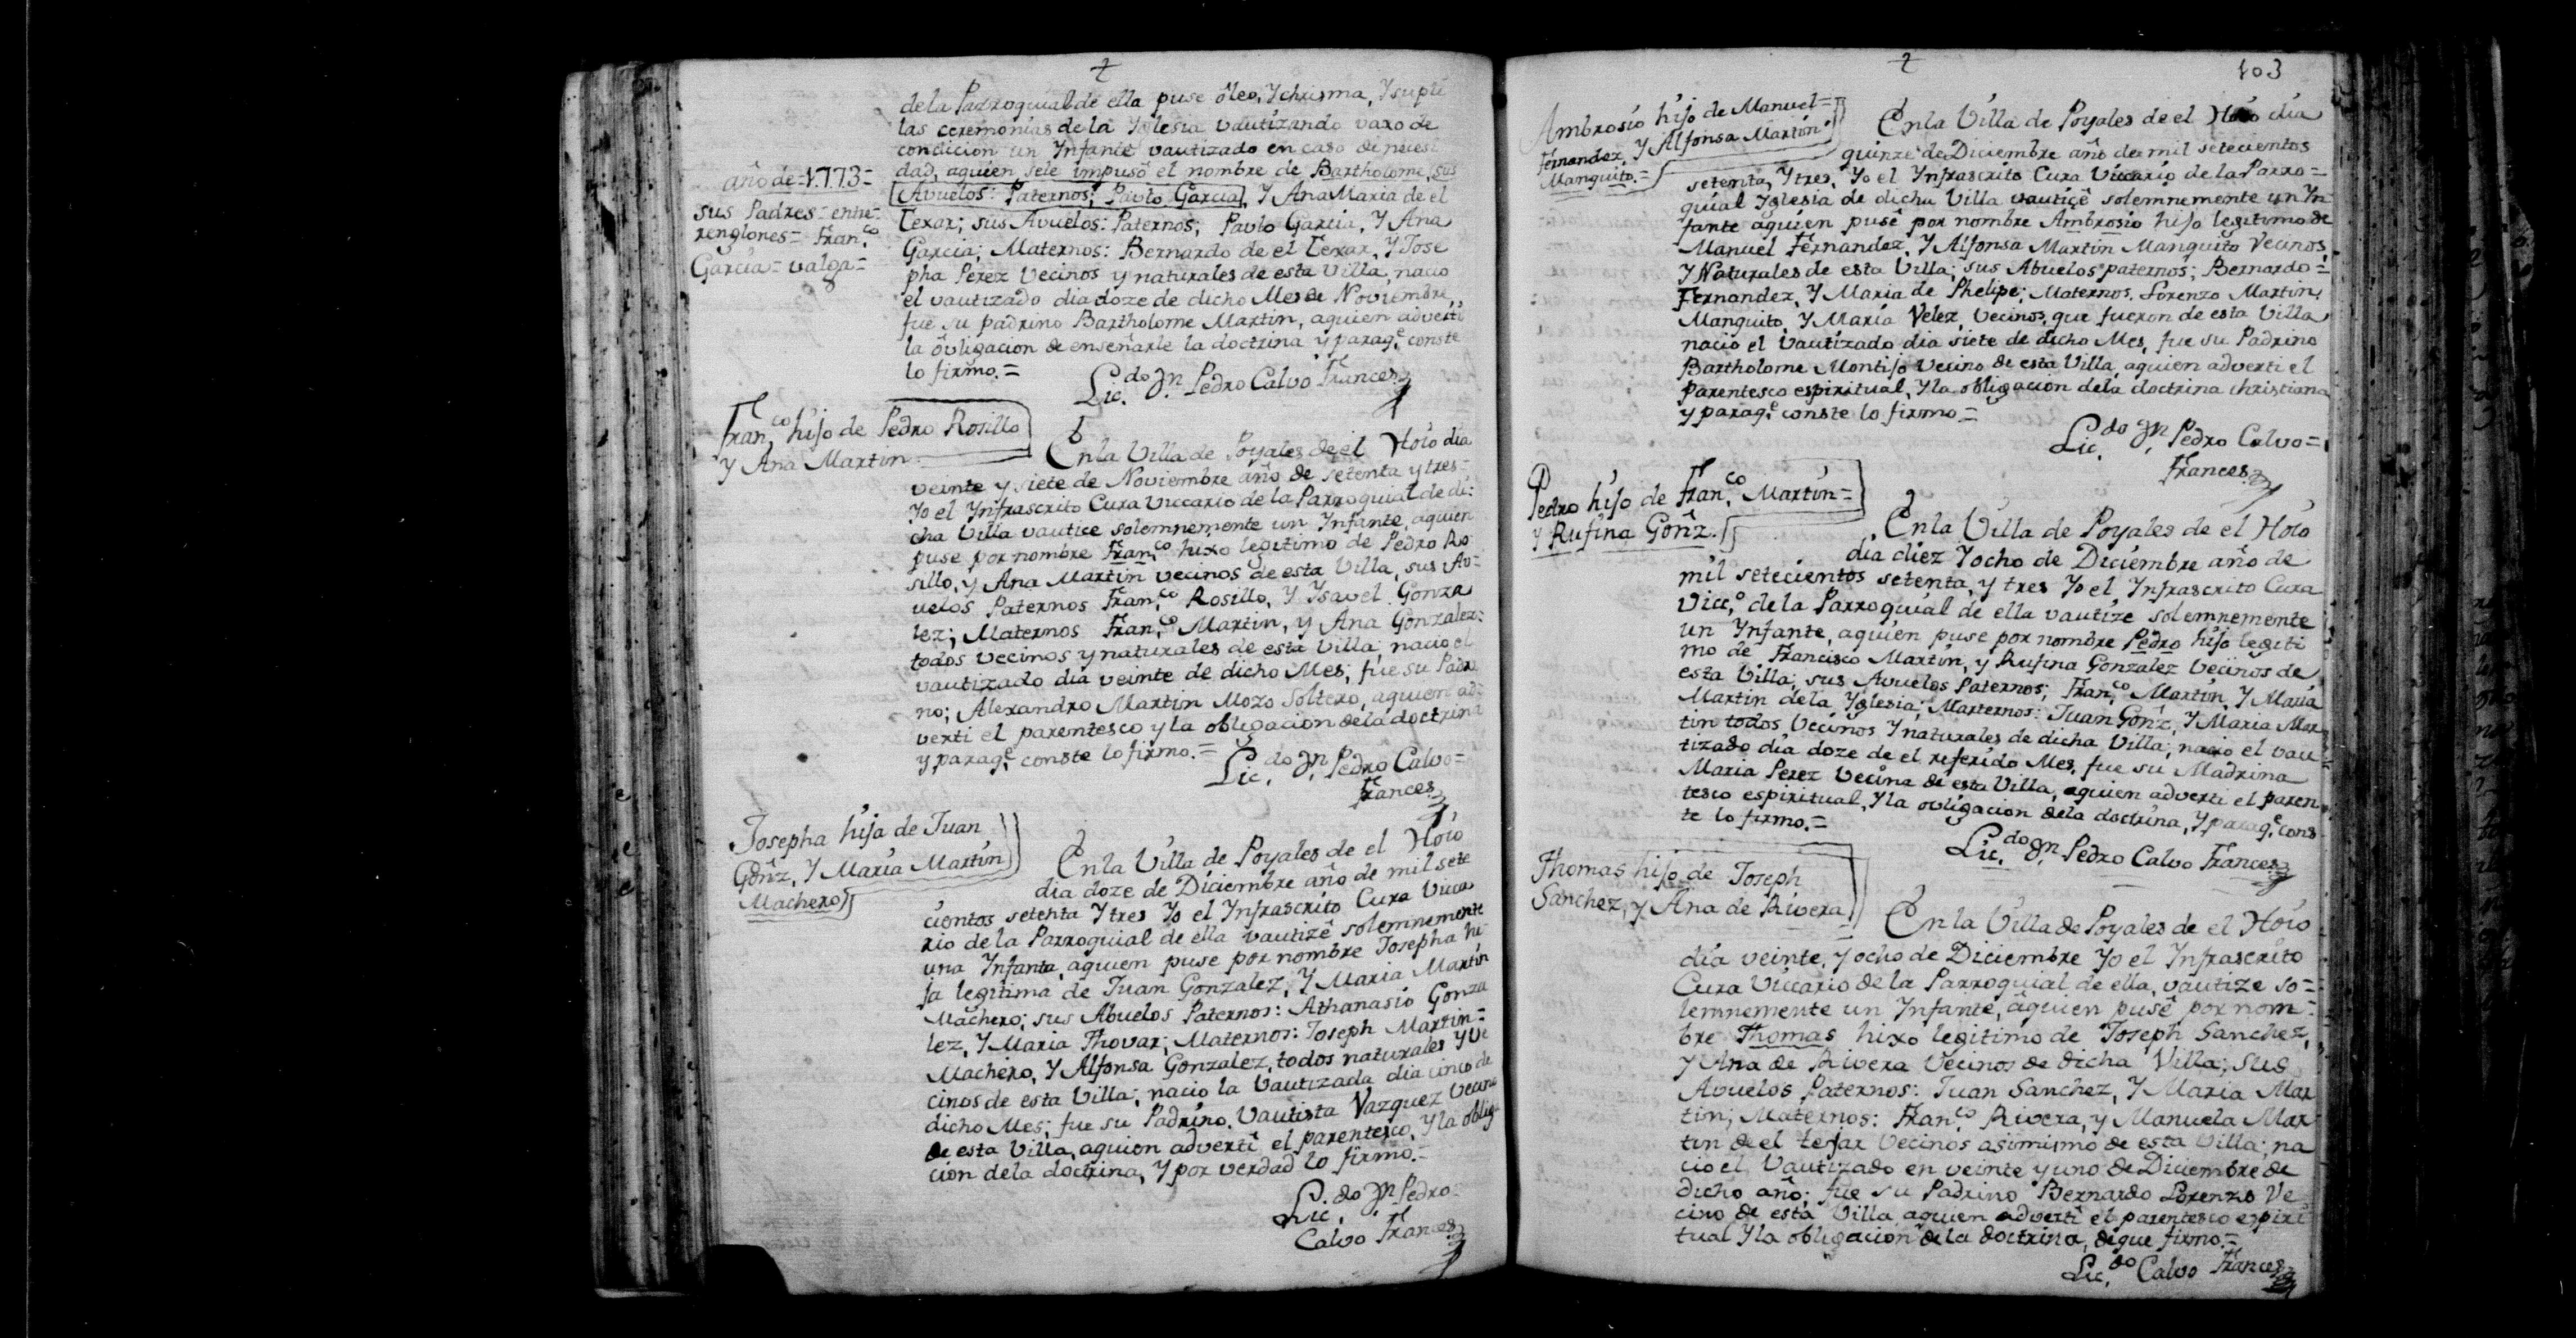 ✝
de la Parroquial de ella puse ôleo, Y chrisma, Y suplí
las ceremonias de la Yglesia vautizando vaxo de
condicion un Ynfante vautizado en caso de necesi
dad, aquien sele impusô el nombre de Bartholome, sus
año de 1773=
sus Padres = entre=
renglones = Fran.co
Garcia = valga =
Avuelos: Paternos; Pavlo Garcia, Y Ana Maria de el
Texar; sus Avuelos: Paternos; Pavlo Garcia, Y Ana
Garcia; Maternos: Bernardo de el Texar, Y Jose
pha Perez Vecinos y naturales de esta Villa, nacio
el vautizado dia doze de dicho Mes de Noviembre,
fue su padrino Bartholome Martin, aquien adverti
la ôvligacion de enseñarle la doctrina y paraq.e conste
lo firmo.=
Lic.do Jn. Pedro Calvo Frances
Fran.co hijo de Pedro Rosillo
y Ana Martin
En la Villa de Poyales de el Hoio dia
veinte y siete de Noviembre año de setenta y tres=
Yo el Ynfrascrito Cura Viccario de la Parroquial de di:
cha Villa vautice solemnemente un Ynfante, aquien
puse por nombre Fran.co hixo legitimo de Pedro Ro
sillo, y Ana Martin vecinos de esta Villa, sus Av=
uelos Paternos Fran.co Rosillo, Y Ysavel Gonza
lez; Maternos Fran.co Martin, y Ana Gonzalez:
todos vecinos y naturales de esta Villa; nacio el
vautizado dia veinte de dicho Mes; fue su Padri
no; Alexandro Martin Mozo Soltero, aquien ad=
verti el parentesco y la obligacion dela doctrina
y paraq.e conste lo firmo.=
Lic.do Jn. Pedro Calvo=
Frances
Josepha hija de Juan
Gônz. Y Maria Martin
Machero
En la Villa de Poyales de el Hoio
dia doze de Diciembre año de mil sete
cientos setenta Y tres Yo el Ynfrascrito Cura Vicca
rio de la Parroquial de ella vautizê solemnemente
una Ynfanta, aquien puse por nombre Josepha hi
ja legitima de Juan Gonzalez, Y Maria Martin
Machero; sus Abuelos Paternos: Athanasio Gonza
lez, Y Maria Thovar; Maternos: Joseph Martin=
Machero, Y Alfonsa Gonzalez, todos naturales y Ve
cinos de esta Villa; nacio la Vautizada dia cinco de
dicho Mes; fue su Padrino Vautista Vazquez Vecino
de esta Villa, aquien adverti el parentesco, Y la oblig
cion dela doctrina, Y por verdad lo firmo.=
Lic.do Jn. Pedro
Calvo Frances
✝
103
Ambrosio hijo de Manuel=
Fernandez, Y Alfonsa Martin
Manguito.=
En la Villa de Poyales de el Hoio dia
quinze de Diciembre año de mil setecientos
setenta, Y tres, Yo el Ynfrascrito Cura Viccario de la Parro=
quial Yglesia de dicha Villa vauticê solemnemente un Yn
fante aquien pusê por nombre Ambrosio hijo legitimo de
Manuel Fernandez, Y Alfonsa Martin Manguito Vecinos,
Y Naturales de esta Villa; sus Abuelos paternos; Bernardo=
Fernandez, Y Maria de Phelipe; Maternos. Lorenzo Martin
Manguito, Y Maria Velez, Vecinos, que fueron de esta Villa
nacio el Vautizado dia siete de dicho Mes, fue su Padrino
Bartholome Montijo Vecino de esta Villa, aquien adverti el
parentesco espiritual, Y la obligacion dela doctrina christiana
y paraq.e conste lo firmo=
Lic.do Jn. Pedro Calvo=
Frances
Pedro hijo de Fran.co Martin=
y Rufina Gônz.
En la Villa de Poyales de el Hoio
dia diez Y ocho de Diciembre año de
mil setecientos setenta, y tres Yo el Ynfrascrito Cura
Vicc.o de la Parroquial de ella vautize solemnemente
un Ynfante, aquien puse por nombre Pedro hijo legiti
mo de Francisco Martin, y Rufina Gonzalez Vecinos de
esta Villa, sus Avuelos Paternos; Fran.co Martin, Y Maria
Martin dela Yglesia; Marternos: Juan Gônz, Y Maria Mar
tin todos Vecinos Y naturales de dicha Villa; nacio el vau
tizado dia doze de el referido Mes, fue su Madrina
Maria Perez Vecina de esta Villa, aquien adverti el paren
tesco espiritual, Y la ovligacion dela doctrina, Y paraq.e cons
te lo firmo.=
Lic.do Jn. Pedro Calvo Frances
Thomas hijo de Joseph
Sanchez, y Ana de Rivera
En la Villa de Poyales de el Hoio
dia veinte, y ocho de Diciembre Yo el Ynfrascrito
Cura Viccario de la Parroquial de ella, vautize so=
lemnemente un Ynfante, âquien pusê por nom=
bre Thomas hixo legitimo de Joseph Sanchez,
Y Ana de Rivera Vecinos de dicha Villa; sus
Avuelos Paternos: Juan Sanchez, Y Maria Mar
tin; Maternos: Fran.co Rivera, y Manuela Mar
tin de el tejar Vecinos asimismo de esta Villa; na
cio el Vautizado en veinte y uno de Diciembre de
dicho año; fue su Padrino Bernardo Lorenzo Ve
cino de esta Villa aquien advertî el parentesco espiri
tual Y la obligacion de la doctrina, de que firmo.=
Lic.do Calvo Frances